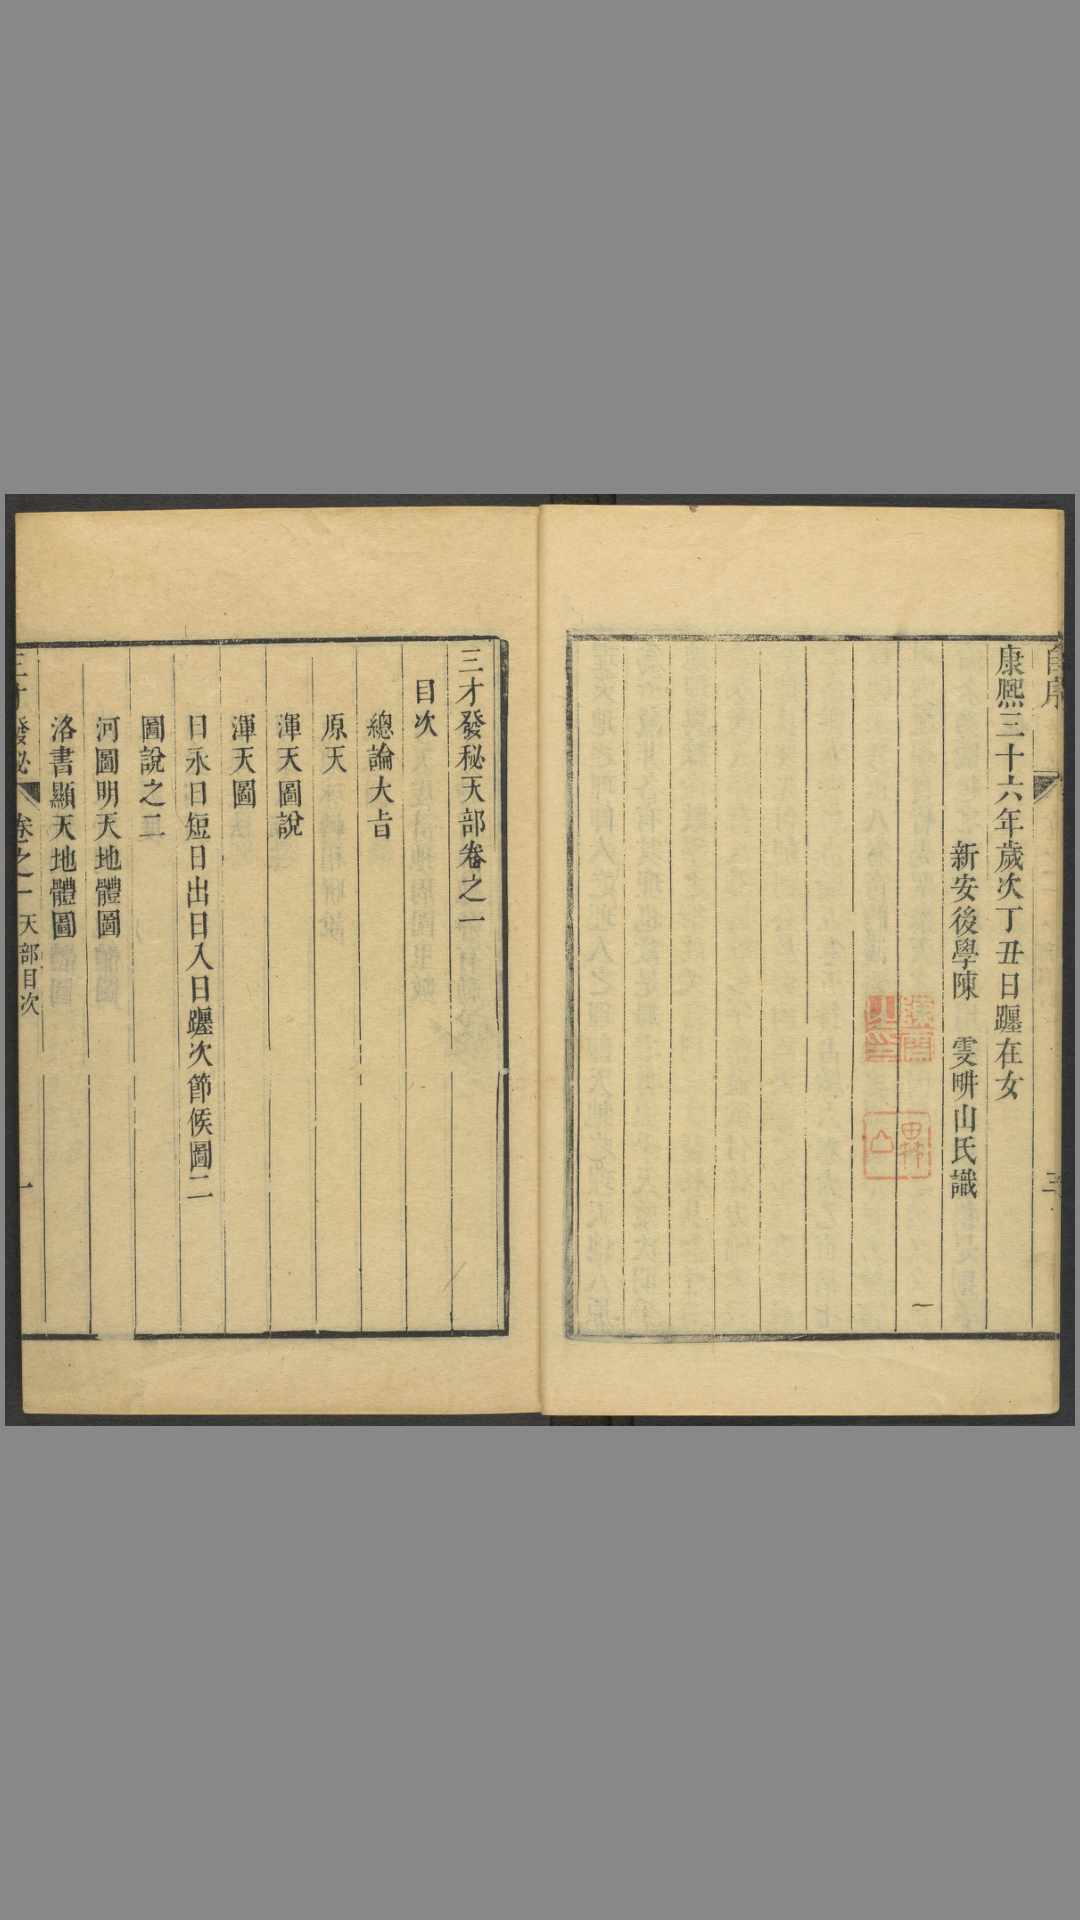 自序
三
康熙三十六年歲次丁丑日躔在女
新安後學陳　雯畊山氏識
三才發秘天部卷之一
目次
總論大旨
原天
渾天圖說
渾天圖
日永日短日出日入日躔次節候圖二
圖說之二
河圖明天地體圖
洛書顯天地體圖
三才發秘　卷之一　天部目次　一